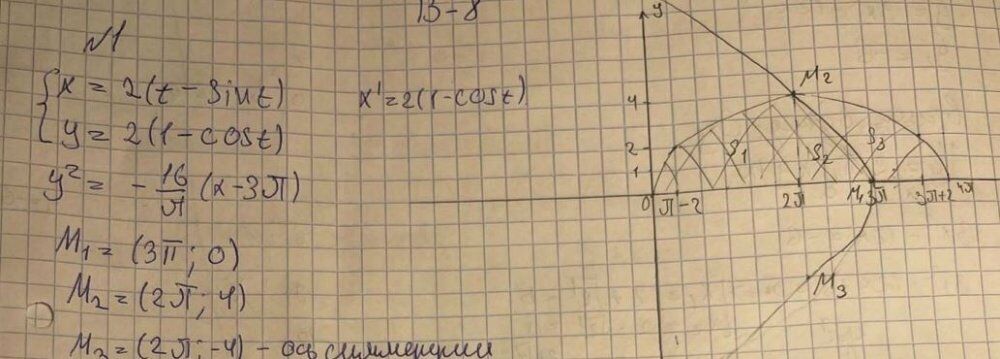 В-8
№1
{x = 2(t - sint)
{y = 2(1 - cost)
x' = 2(1-cost)
y² = - 16/π (x-3π)
M₁ = (3π; 0)
M₂ = (2π; 4)
M₃ = (2π; -4) - ось симметрии
y
4
2
1
0
π-2
2π
M₁ 3π
3π+2
4π
M₂
S₁
S₂
S₃
M₃